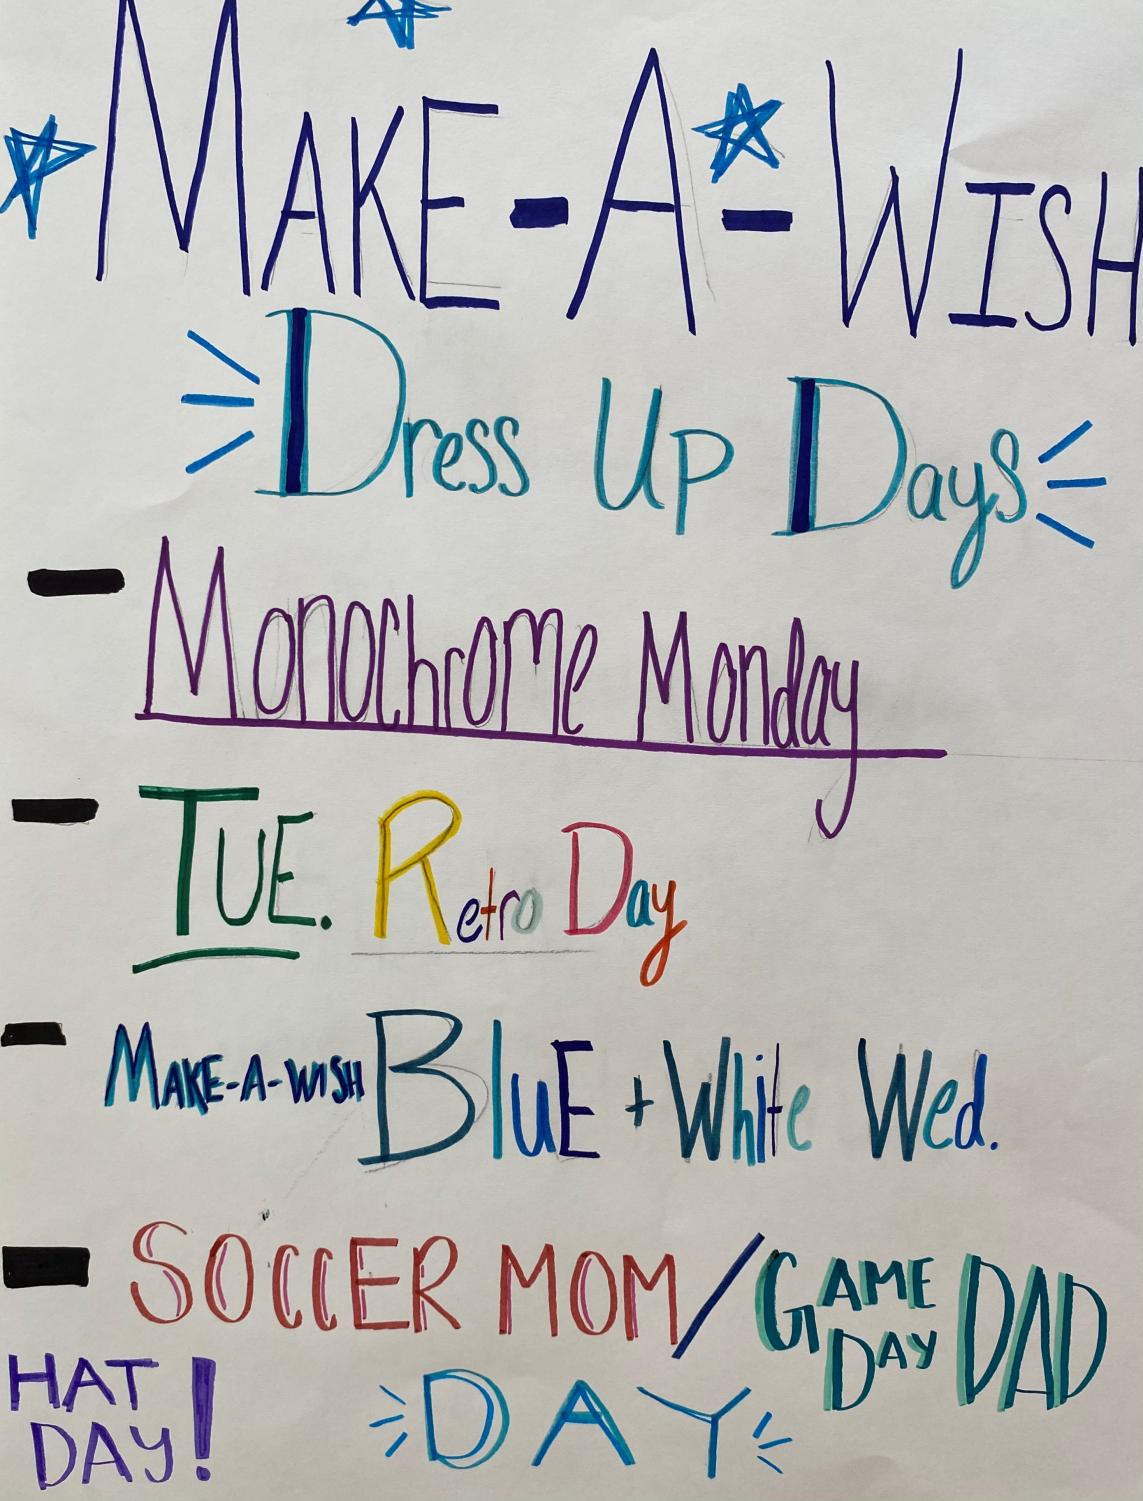 MAKE-A-WISH
Dress Up Days
Monochrome Monday
TUE. Retro Day
MAKE-A-WISH BluE + White Wed.
SOCCER MOM/GAME DAY DAD
DAY
HAT
DAY!